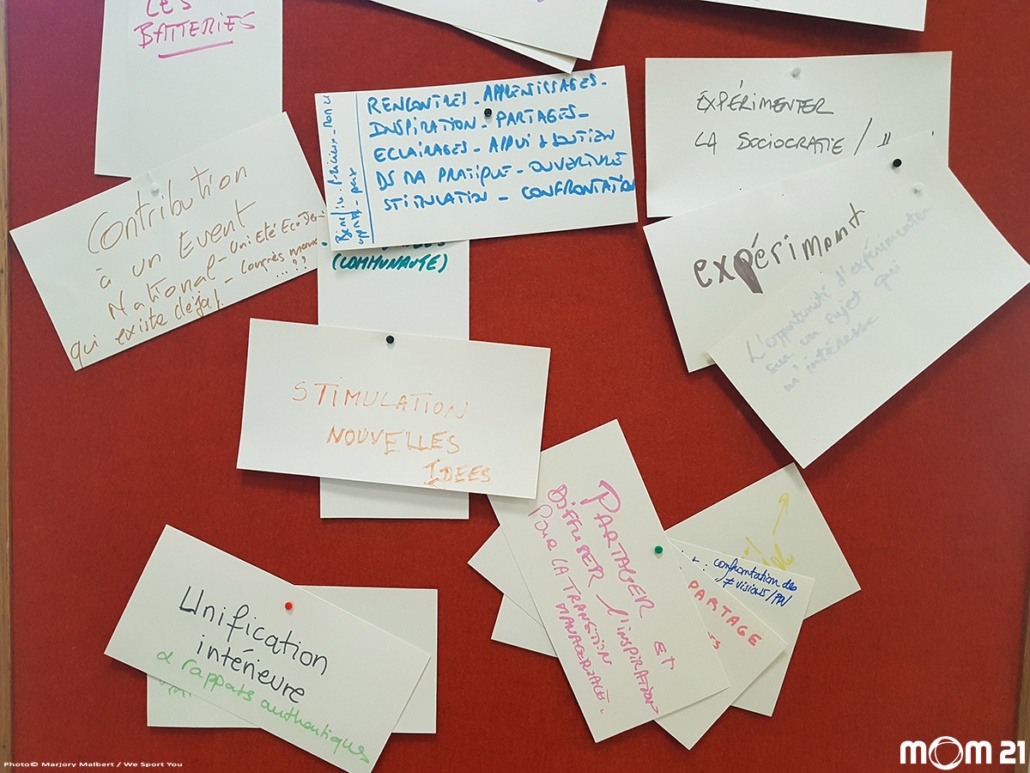 LES
BATTERIES
RENCONTRES - APPRENTISSAGES -
INSPIRATION - PARTAGES -
ECLAIRAGES - APPUI & SOUTIEN
DS MA PRATIQUE - OUVERTURE
STIMULATION - CONFRONTATION
EXPÉRIMENTER
LA SOCIOCRATIE / II
Contribution
à un Event
National -
qui existe déjà!
(COMMUNAUTÉ)
expériment
L'opportunité d'expérimenter
sur un sujet qui
m'intéresse
STIMULATION
NOUVELLES
IDEES
PARTAGER ET
DIFFUSER l'INSPIRATION
POUR LA TRANSITION
MANAGERIALE.
confrontation de
≠ visions/
PARTAGE
Unification
intérieure
& rapports authentiques
Photo© Marjory Malbert / We Sport You
mom 21